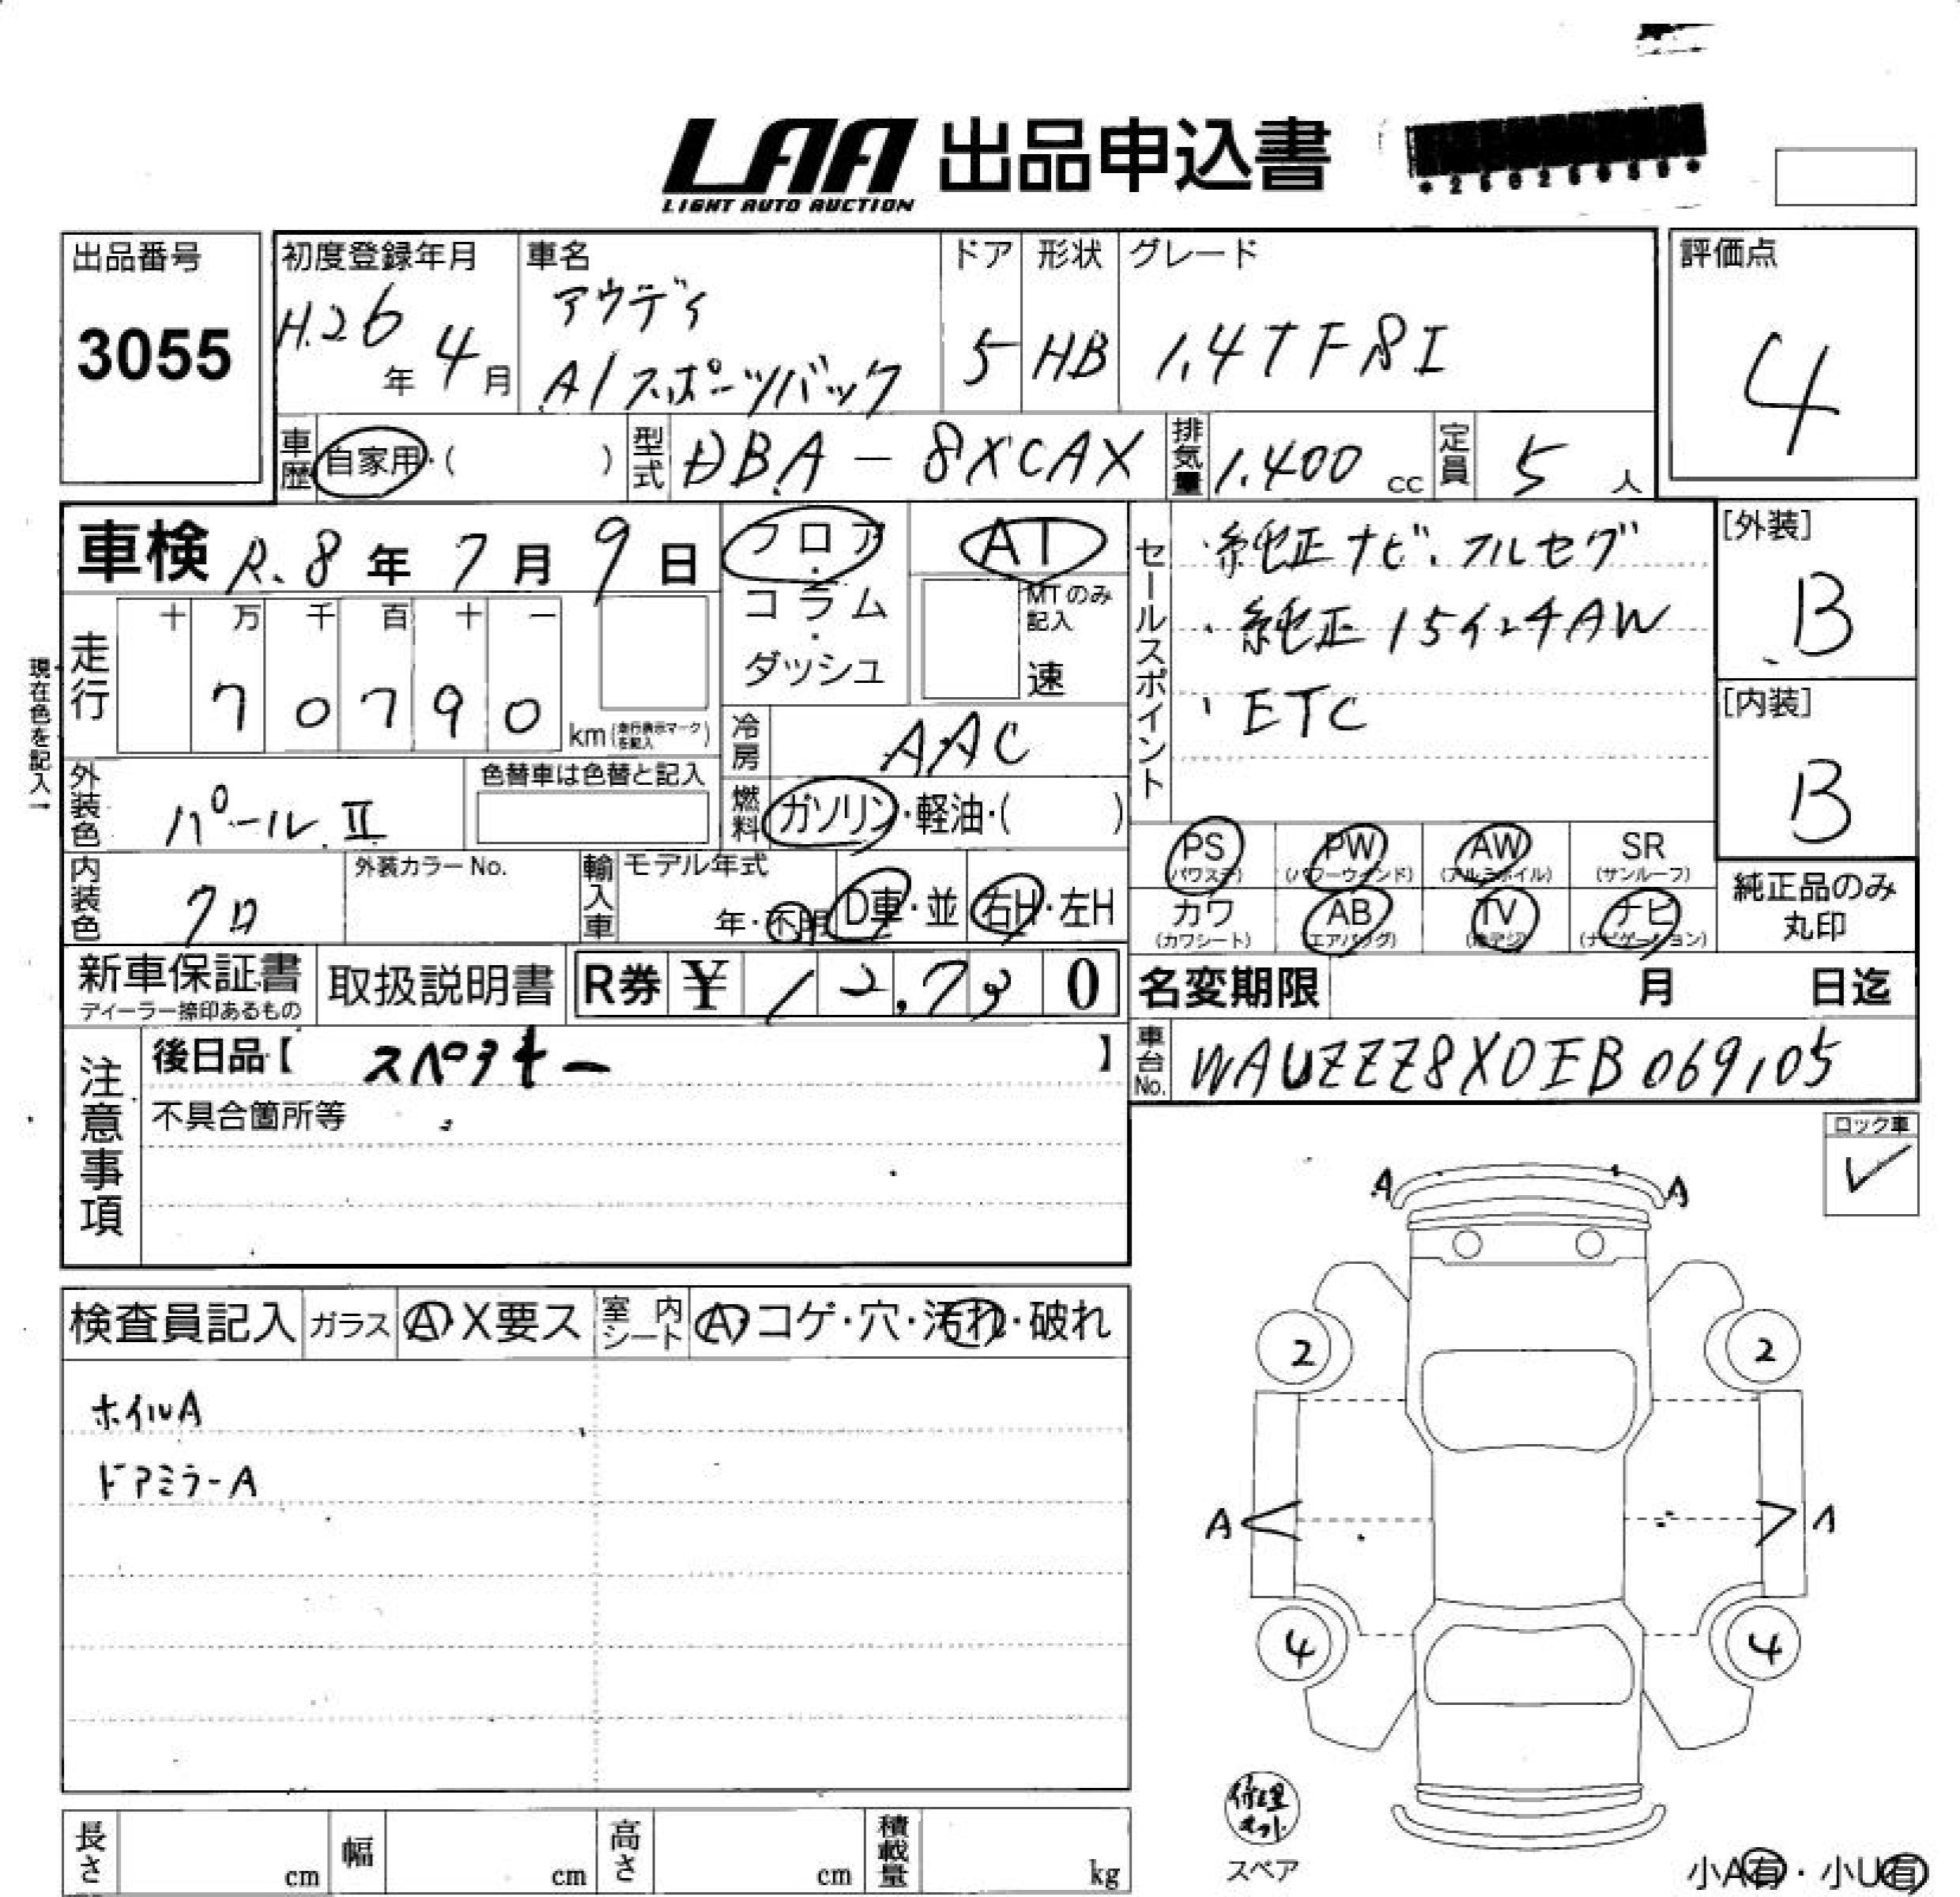 LAA 出品申込書
LIGHT AUTO AUCTION
出品番号
3055
初度登録年月
H.26年 4月
車名
アウディ
A1スポーツバック
ドア
5
形状
HB
グレード
1.4TFSI
評価点
4
車歴 自家用・( )
型式 DBA-8XCAX
排気量 1.400 cc
定員 5 人
車検 R.8年 7月 9日
フロア・コラム・ダッシュ
AT
MTのみ記入
速
セールスポイント
・純正ナビ.フルセグ
・純正15インチAW
・ETC
[外装]
B
[内装]
B
現在色を記入→
走行
十 万 千 百 十 一
7 0 7 9 0 km(走行表示マークを記入)
冷房 AAC
外装色 パールⅡ
色替車は色替と記入
燃料 ガソリン・軽油・( )
内装色 クロ
外装カラーNo.
輸入車 モデル年式
年・不明
D車・並
右H・左H
PS (パワステ)
PW (パワーウインド)
AW (アルミホイル)
SR (サンルーフ)
カワ (カワシート)
AB (エアバッグ)
TV (地デジ)
ナビ (ナビゲーション)
純正品のみ丸印
新車保証書
ディーラー捺印あるもの
取扱説明書
R券 ¥ 12,730
名変期限 月 日迄
車台No. WAUZZZ8X0EB069105
注意事項
後日品【 スペアキー 】
不具合箇所等
ロック車
✓
検査員記入
ガラス Ⓐ X要ス
室内シート Ⓐ コゲ・穴・汚れ・破れ
ホイルA
ドアミラーA
A A
2 2
A
4 4
修理キット
スペア
小A有・小U有
長さ cm
幅 cm
高さ cm
積載量 kg